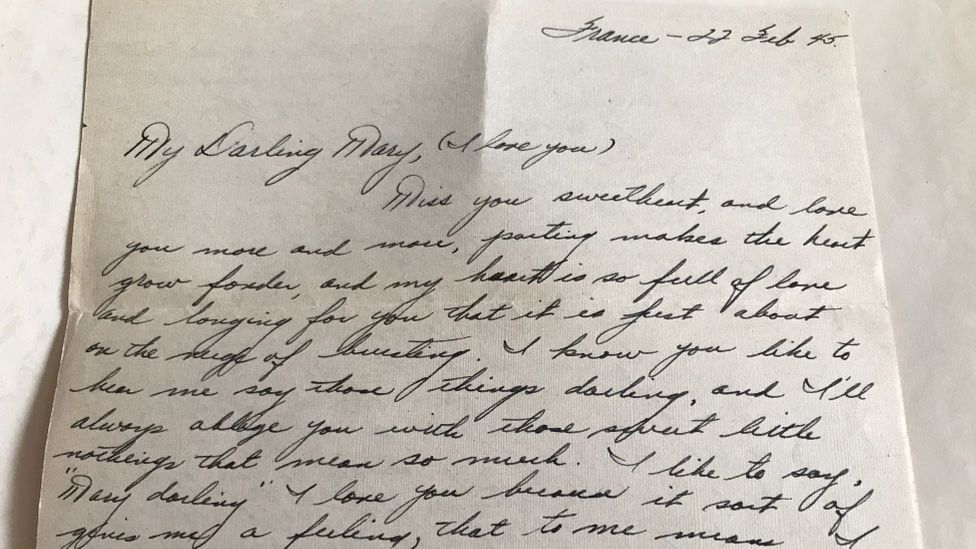 France - 22 Feb 45.
My Darling Mary, (I love you)
Miss you sweetheart, and love
you more and more, parting makes the heart
grow fonder, and my heart is so full of love
and longing for you that it is just about
on the verge of bursting. I know you like to
hear me say those things darling, and I'll
always oblige you with those sweet little
nothings that mean so much. I like to say,
"Mary darling" I love you because it sort of
gives me a feeling, that to me means I